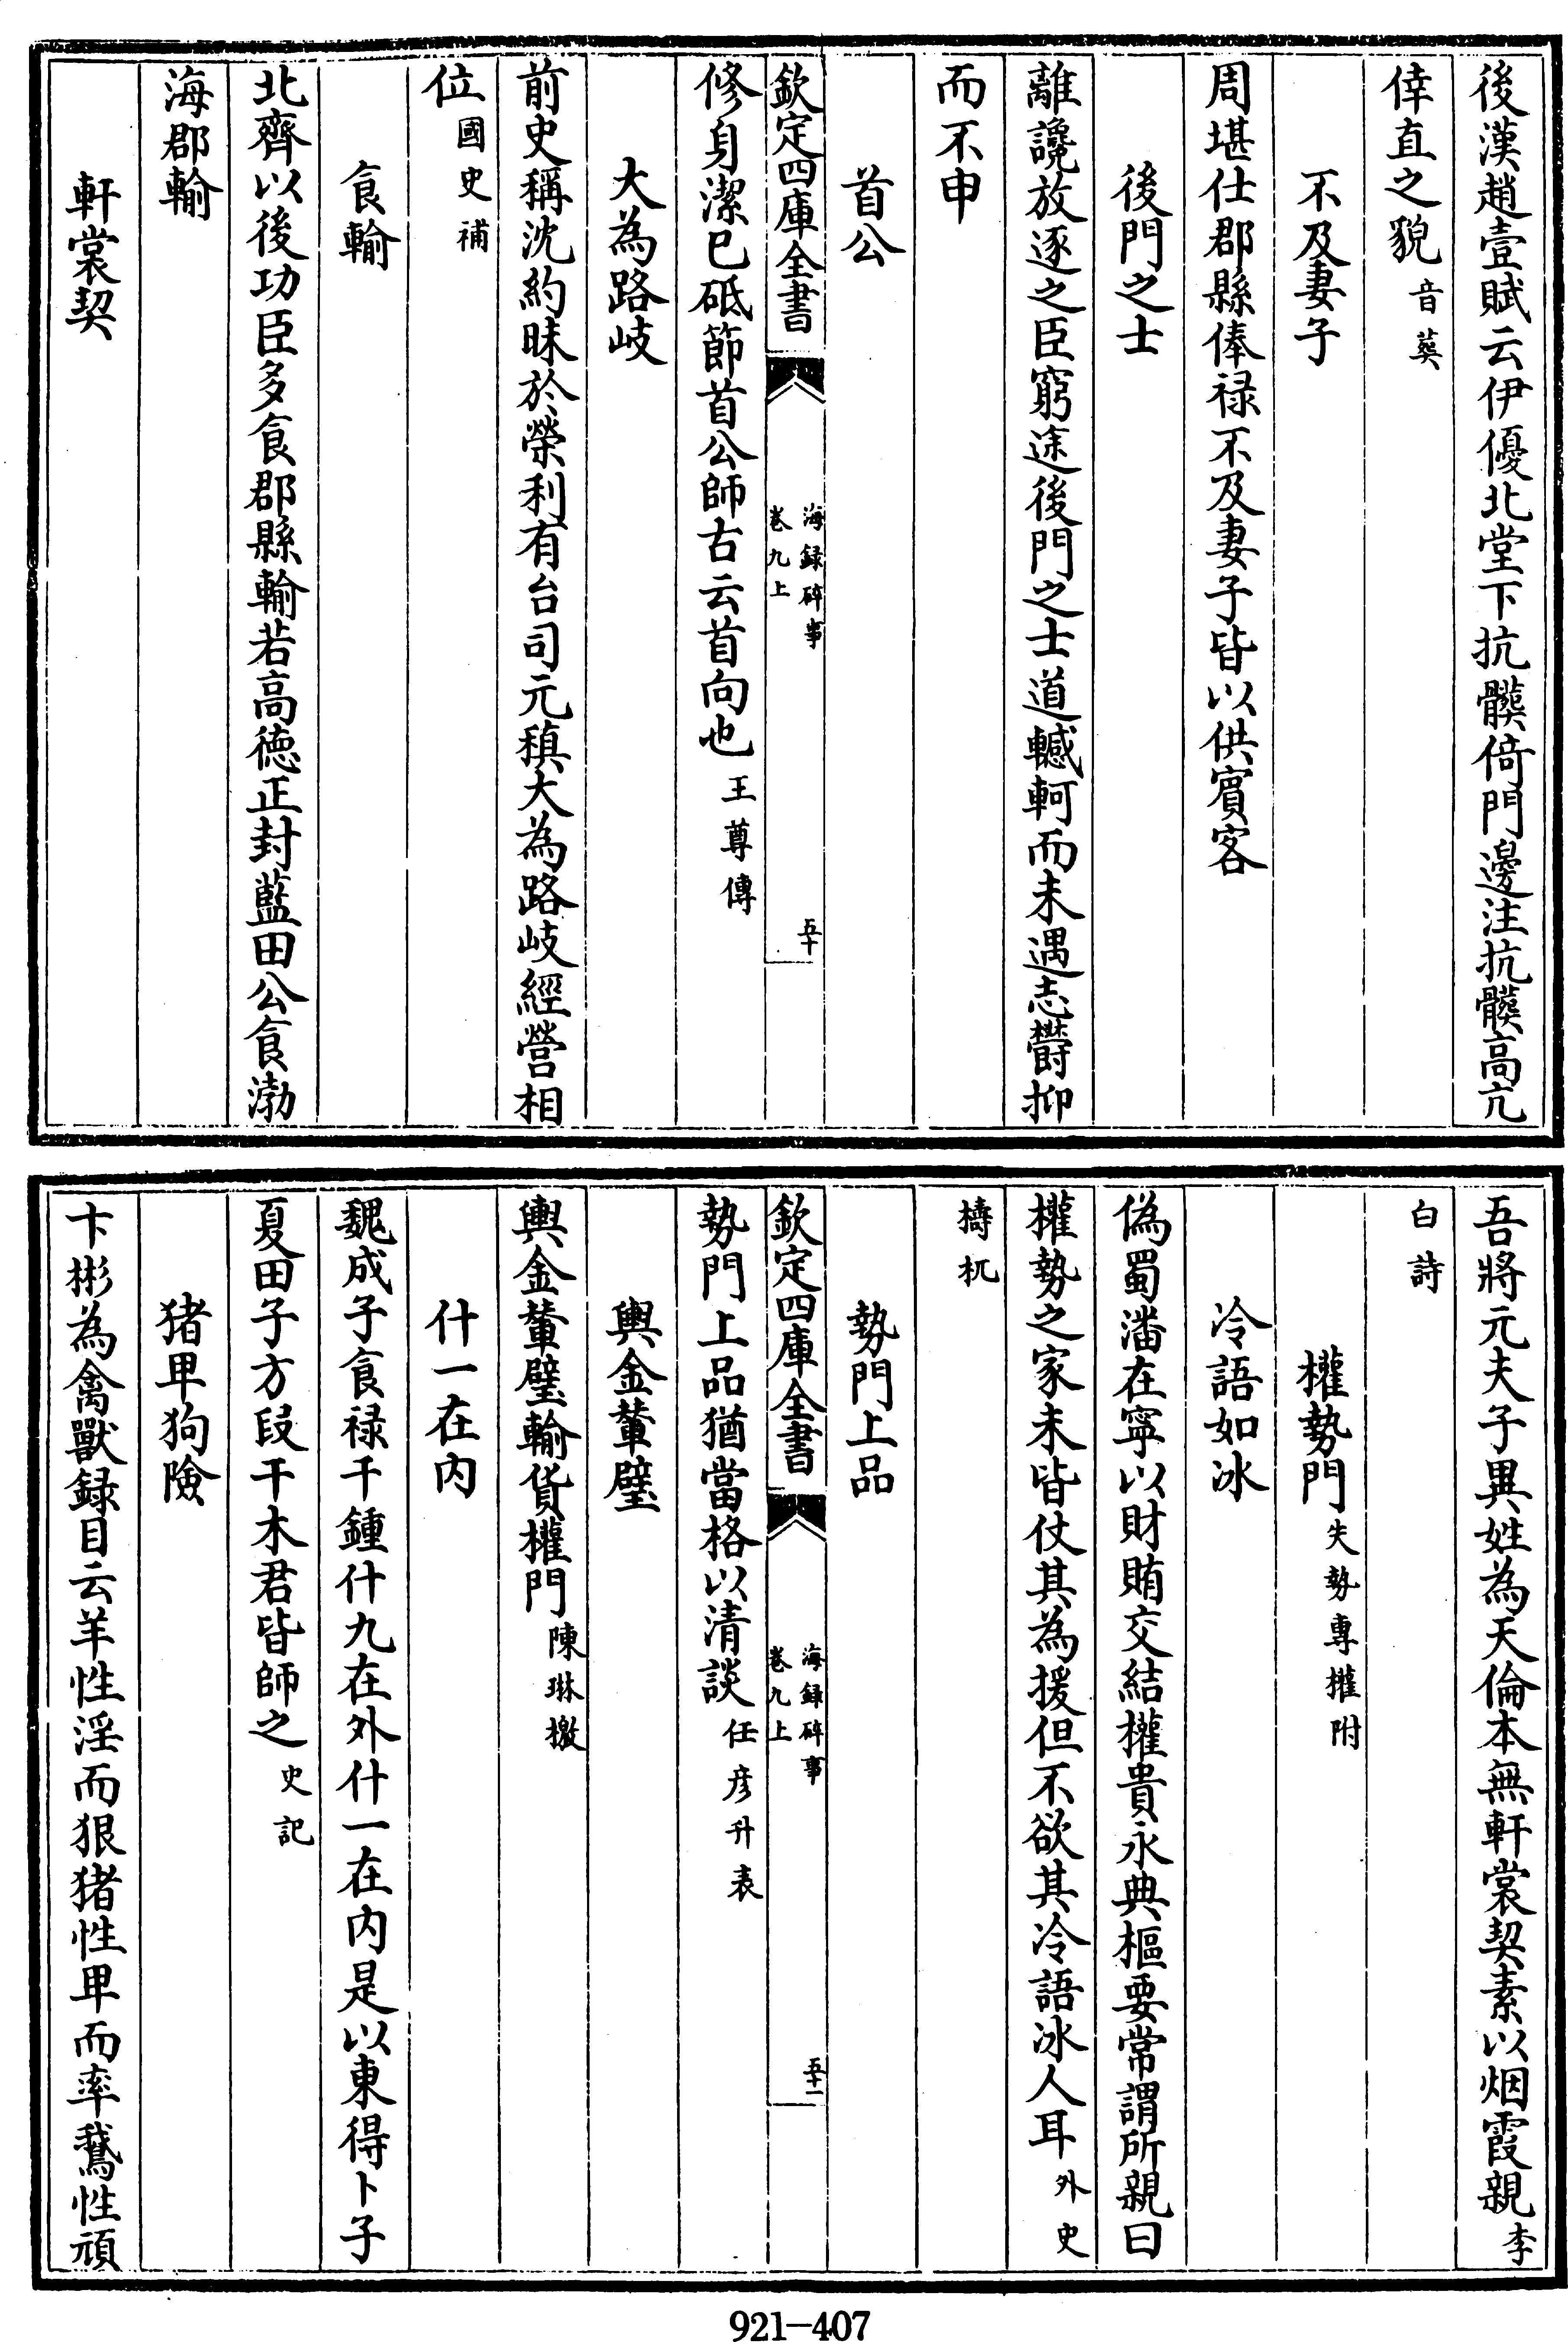 後漢趙壹賦云伊優北堂下抗髒倚門邊注抗髒高亢
倖直之貌音葬
不及妻子
周堪仕郡縣俸禄不及妻子皆以供賓客
後門之士
離讒放逐之臣窮途後門之士道轗軻而未遇志欝抑
而不申
首公
欽定四庫全書
海録碎事
卷九上
五十
修身潔已砥節首公師古云首向也王尊傳
大為路岐
前史稱沈約昧於榮利有台司元稹大為路岐經營相
位國史補
食輸
北齊以後功臣多食郡縣輸若高德正封藍田公食渤
海郡輸
軒裳契
吾將元夫子異姓為天倫本無軒裳契素以烟霞親李
白詩
權勢門失勢專權附
冷語如冰
偽蜀潘在寧以財賄交結權貴永典樞要常謂所親曰
權勢之家未皆仗其為援但不欲其冷語冰人耳外史
檮杌
勢門上品
欽定四庫全書
海録碎事
卷九上
五十一
勢門上品猶當格以清談任彦升表
輿金輦璧
輿金輦璧輸貨權門陳琳檄
什一在内
魏成子食禄千鍾什九在外什一在内是以東得卜子
夏田子方段干木君皆師之史記
猪卑狗險
卞彬為禽獸録目云羊性淫而狠猪性卑而率鵞性頑
921-407